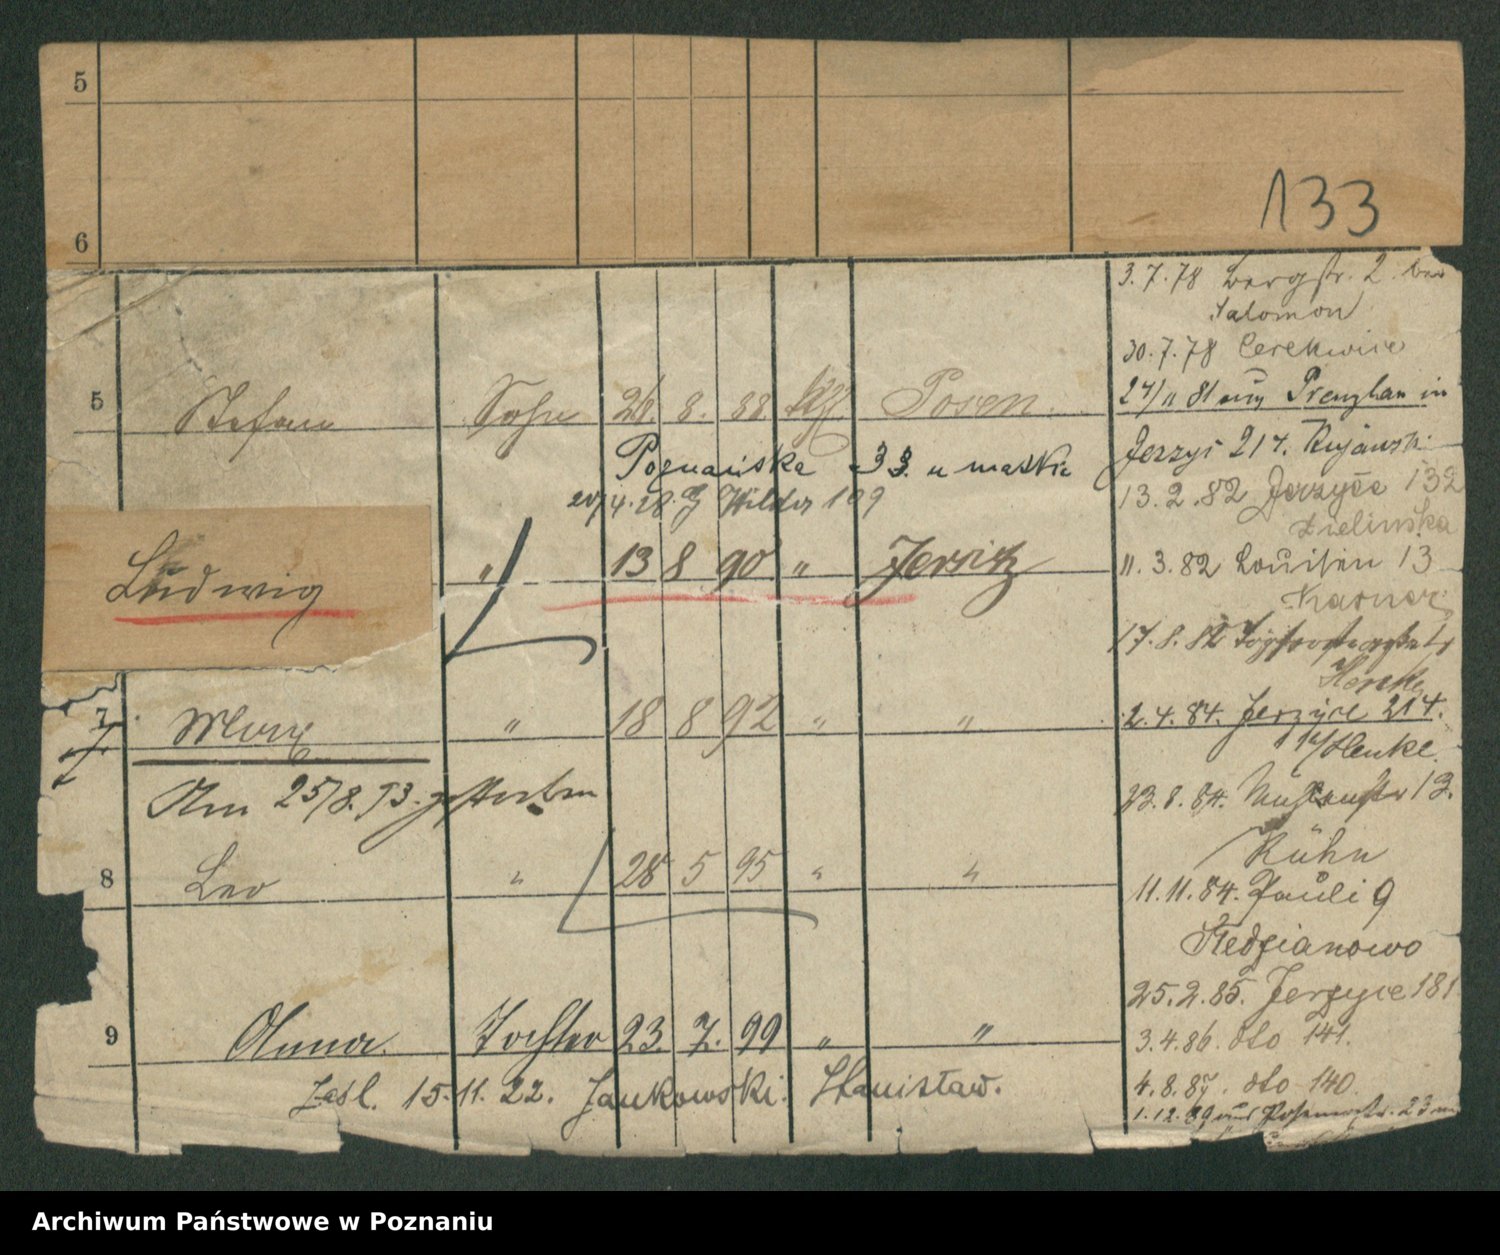 5
6
133
5 Stefan Sohn 26 8. 88 kath. Posen.
Poznańska 33. u matki
20/4.28. Wilder 109
Ludwig " 13 8 90 " Jersitz
7 Max " 18 8 92 " "
Am 25/8.93. gestorben
8 Leo " 28 5 95 " "
9 Anna Tochter 23. 7. 99 " "
Zaśl. 15.11.22. Jankowski Stanisław.
3.7.78 Bergstr. 2. bei
Salomon
30.7.78 Cerekwice
24/11 81 aus Prenzlau in
Jerzyc 214. Kujawski
13.2.82 Jerzyce 132
Zielinska
11.3.82 Louisen 13
17.8.82
Henke
2.4.84. Jerzyce 214.
Henke.
23.8.84. 13.
Kühn
11.11.84. Pauli 9
25.2.85. Jerzyce 181
3.4.86. dto 141.
4.8.87. dto 140
1.12.89 aus Posenerstr. 23
Archiwum Państwowe w Poznaniu